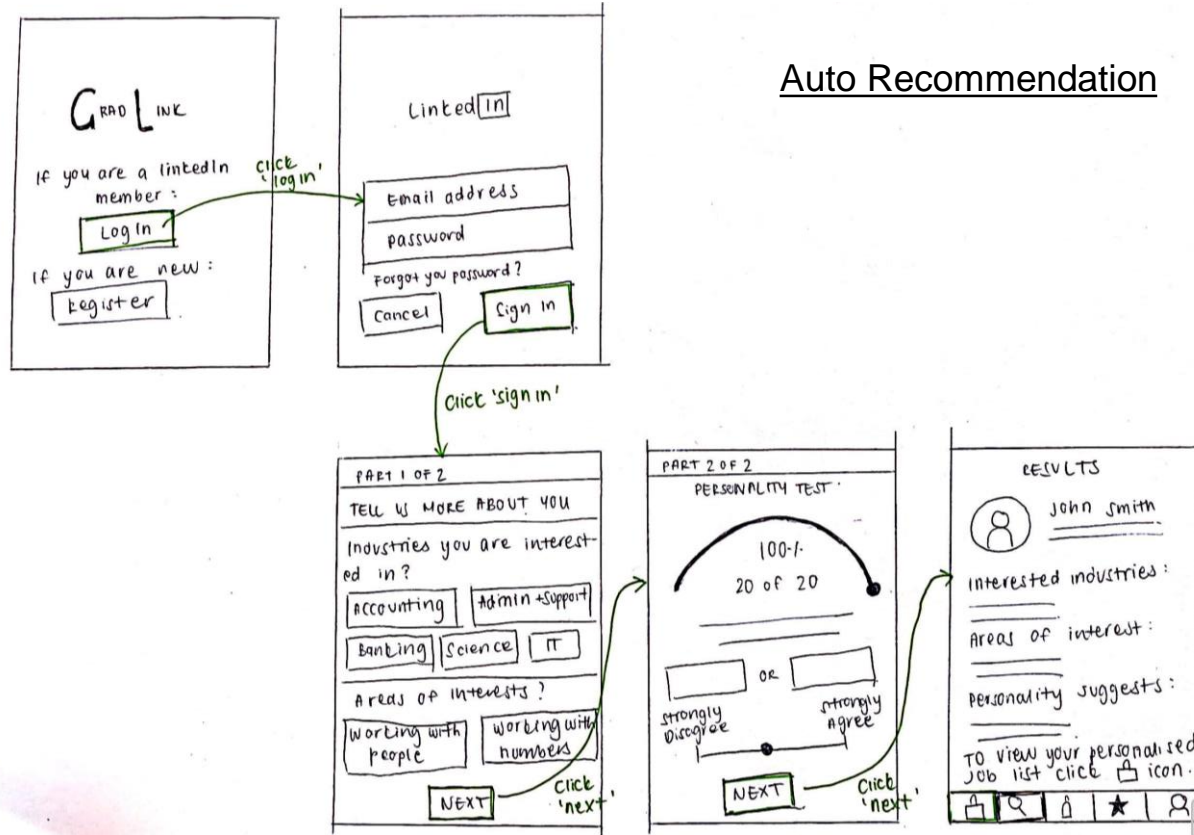 Auto Recommendation
GRAD LINK
If you are a linkedIn
member :
Log In
If you are new :
Register
click
'log in'
Linked In
Email address
password
Forgot you password?
Cancel
Sign in
Click 'sign in'
PART 1 OF 2
TELL US MORE ABOUT YOU
Industries you are interest-
ed in?
Accounting
Admin + Support
Banking
Science
IT
Areas of interests?
working with
people
working with
numbers
NEXT
Click
'next'
PART 2 OF 2
PERSONALITY TEST.
100%
20 of 20
OR
strongly
Disagree
strongly
Agree
NEXT
Click
'next'
RESULTS
John Smith
Interested industries :
Areas of interest :
Personality suggests :
To view your personalised
Job list click icon.